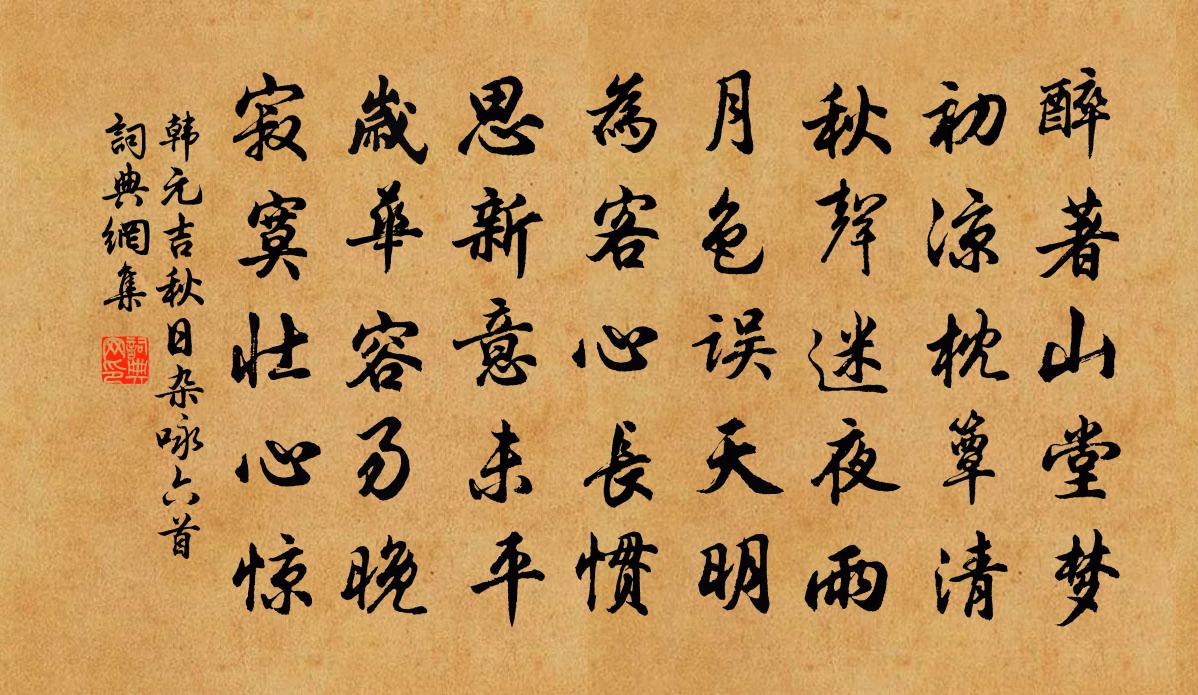 醉著山堂梦
初凉枕簟清
秋聲迷夜雨
月色误天明
為客心長慣
思新意未平
歲華容易晚
寂寞壮心惊
韩元吉秋日杂咏六首
詞典網集
詞典网印